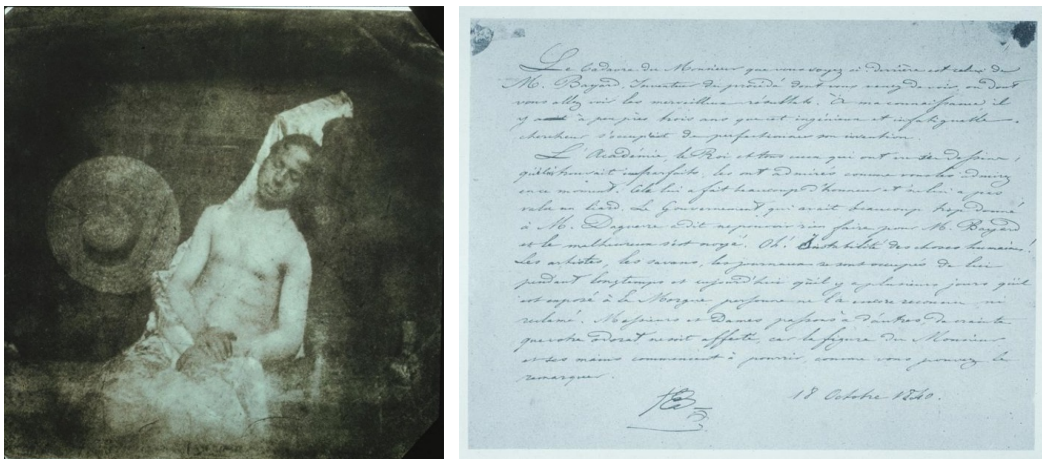 Le Cadavre du Monsieur que vous voyez ci derrière est celui de
M. Bayard, Inventeur du procédé dont vous venez de voir, ou dont
vous allez voir les merveilleux résultats. À ma connaissance il
y a à peu près trois ans que cet ingénieux et infatiguable
chercheur s'occupait de perfectionner son invention.
L'Académie, le Roi et tous ceux qui ont vu ses dessins,
que lui trouvait imparfaits, les ont admirés comme vous les admirez
en ce moment. Cela lui a fait beaucoup d'honneur et ne lui a pas
valu un liard. Le Gouvernement qui avait beaucoup trop donné
à M. Daguerre a dit ne pouvoir rien faire pour M. Bayard
et le malheureux s'est noyé. Oh! Instabilité des choses humaines!
Les artistes, les savans, les journaux se sont occupés de lui
pendant longtemps et aujourd'hui qu'il y a plusieurs jours qu'il
est exposé à la Morgue personne ne l'a encore reconnu ni
réclamé. Messieurs et Dames, passons à d'autres, de crainte
que votre odorat ne soit affecté, car la figure du Monsieur
et ses mains commencent à pourrir, comme vous pouvez le
remarquer.
HB
18 Octobre 1840.